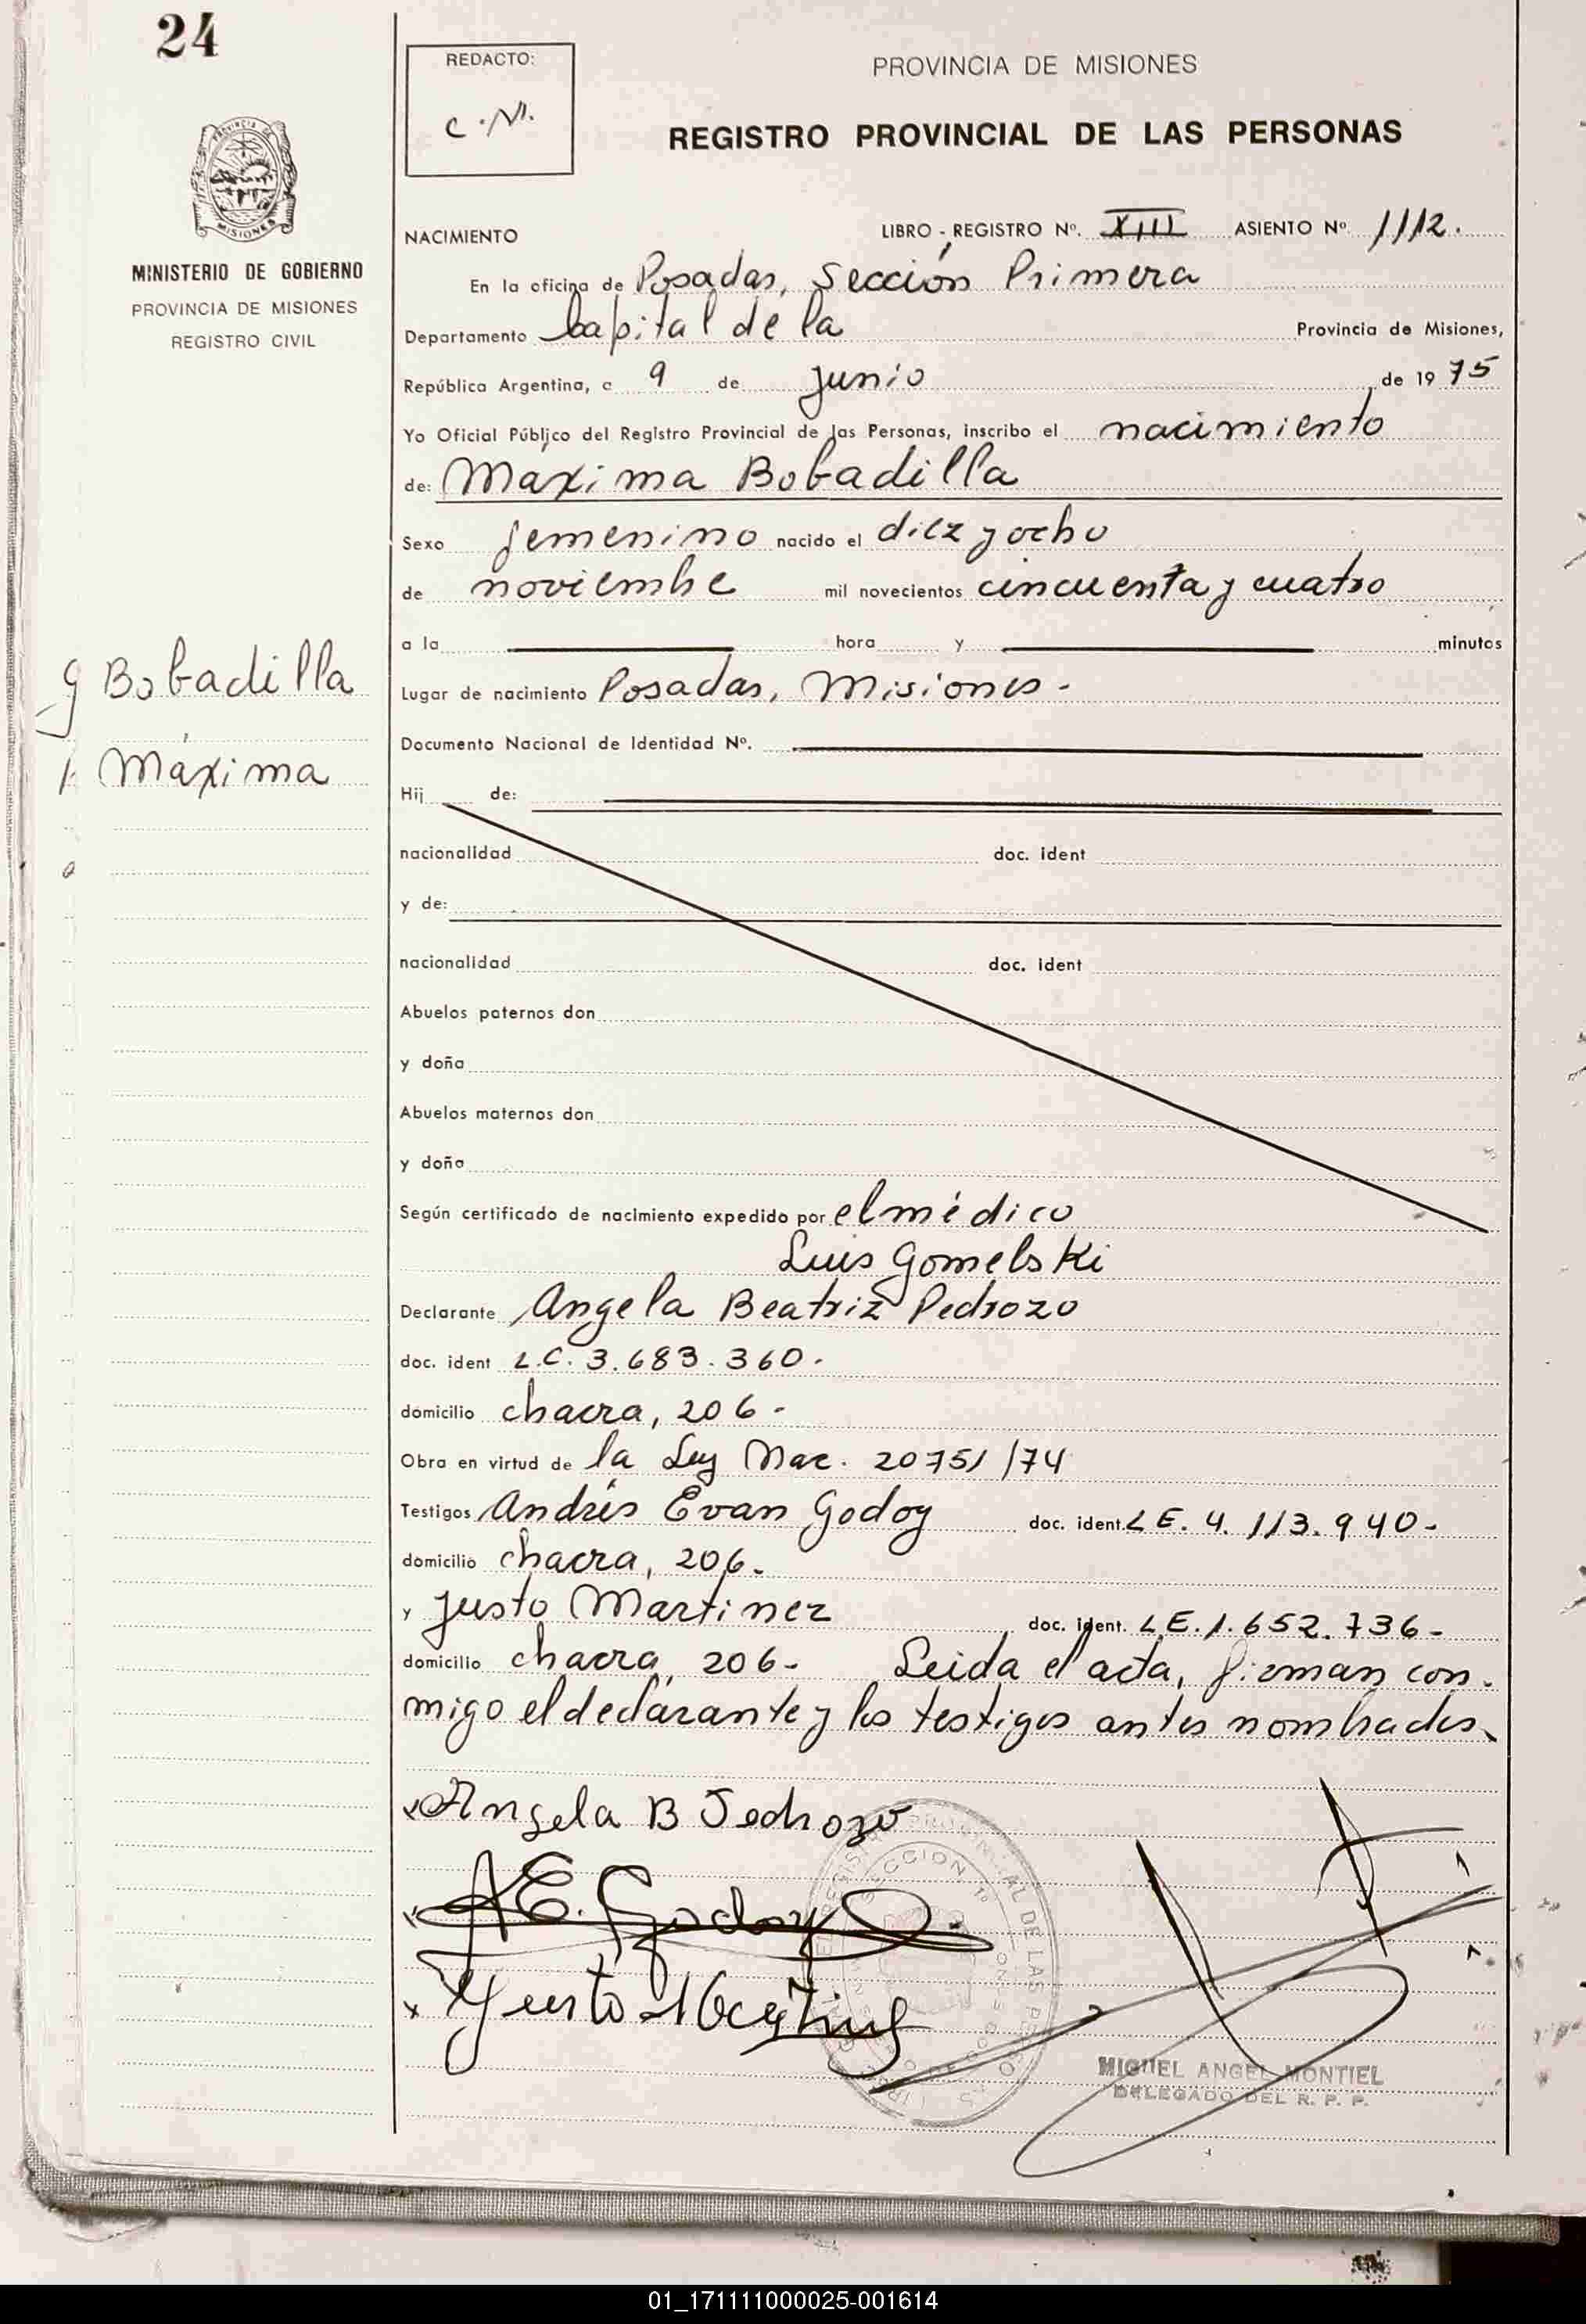 24
REDACTO:
C.M.
PROVINCIA DE MISIONES
REGISTRO PROVINCIAL DE LAS PERSONAS
MISIONES
MINISTERIO DE GOBIERNO
PROVINCIA DE MISIONES
REGISTRO CIVIL
NACIMIENTO LIBRO - REGISTRO Nº. XIII ASIENTO Nº 1112.
En la oficina de Posadas, Sección Primera
Departamento Capital de la Provincia de Misiones,
República Argentina, a 9 de Junio de 1975
Yo Oficial Público del Registro Provincial de las Personas, inscribo el nacimiento
de: Maxima Bobadilla
Sexo femenino nacido el diez y ocho
de noviembre mil novecientos cincuenta y cuatro
a la hora y minutos
Bobadilla
Lugar de nacimiento Posadas, Misiones -
Documento Nacional de Identidad Nº.
Máxima
Hij de:
nacionalidad doc. ident
y de:
nacionalidad doc. ident
Abuelos paternos don
y doña
Abuelos maternos don
y doña
Según certificado de nacimiento expedido por el médico
Luis Gomelski
Declarante Angela Beatriz Pedrozo
doc. ident L.C. 3.683.360.
domicilio chacra, 206 -
Obra en virtud de la Ley Nac. 20751/74
Testigos Andrés Evan Godoy doc. ident. L E. 4.113.940-
domicilio chacra, 206.
y Justo Martinez doc. ident. L.E. 1.652.736-
domicilio chacra, 206- Leida el acta, firman con-
migo el declarante y los testigos antes nombrados.
Angela B Pedrozo
A E. Godoy
Justo Martinez
SECCION 1º
MIGUEL ANGEL MONTIEL
DELEGADO DEL R. P. P.
01_171111000025-001614